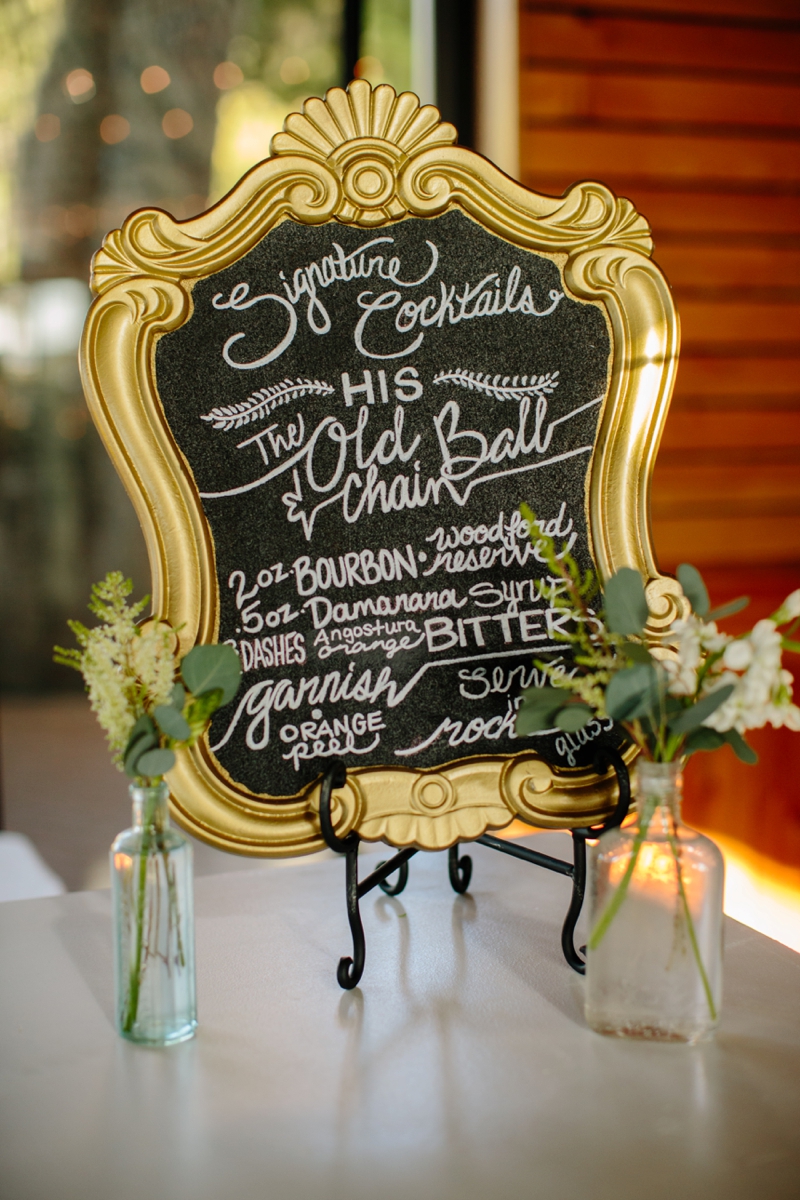 Signature
Cocktails
HIS
The Old Ball
& chain
2oz. BOURBON • woodford reserve
.5oz. Damarara Syrup
DASHES Angostura orange BITTERS
garnish
ORANGE
peel
serve
in
rocks
glass